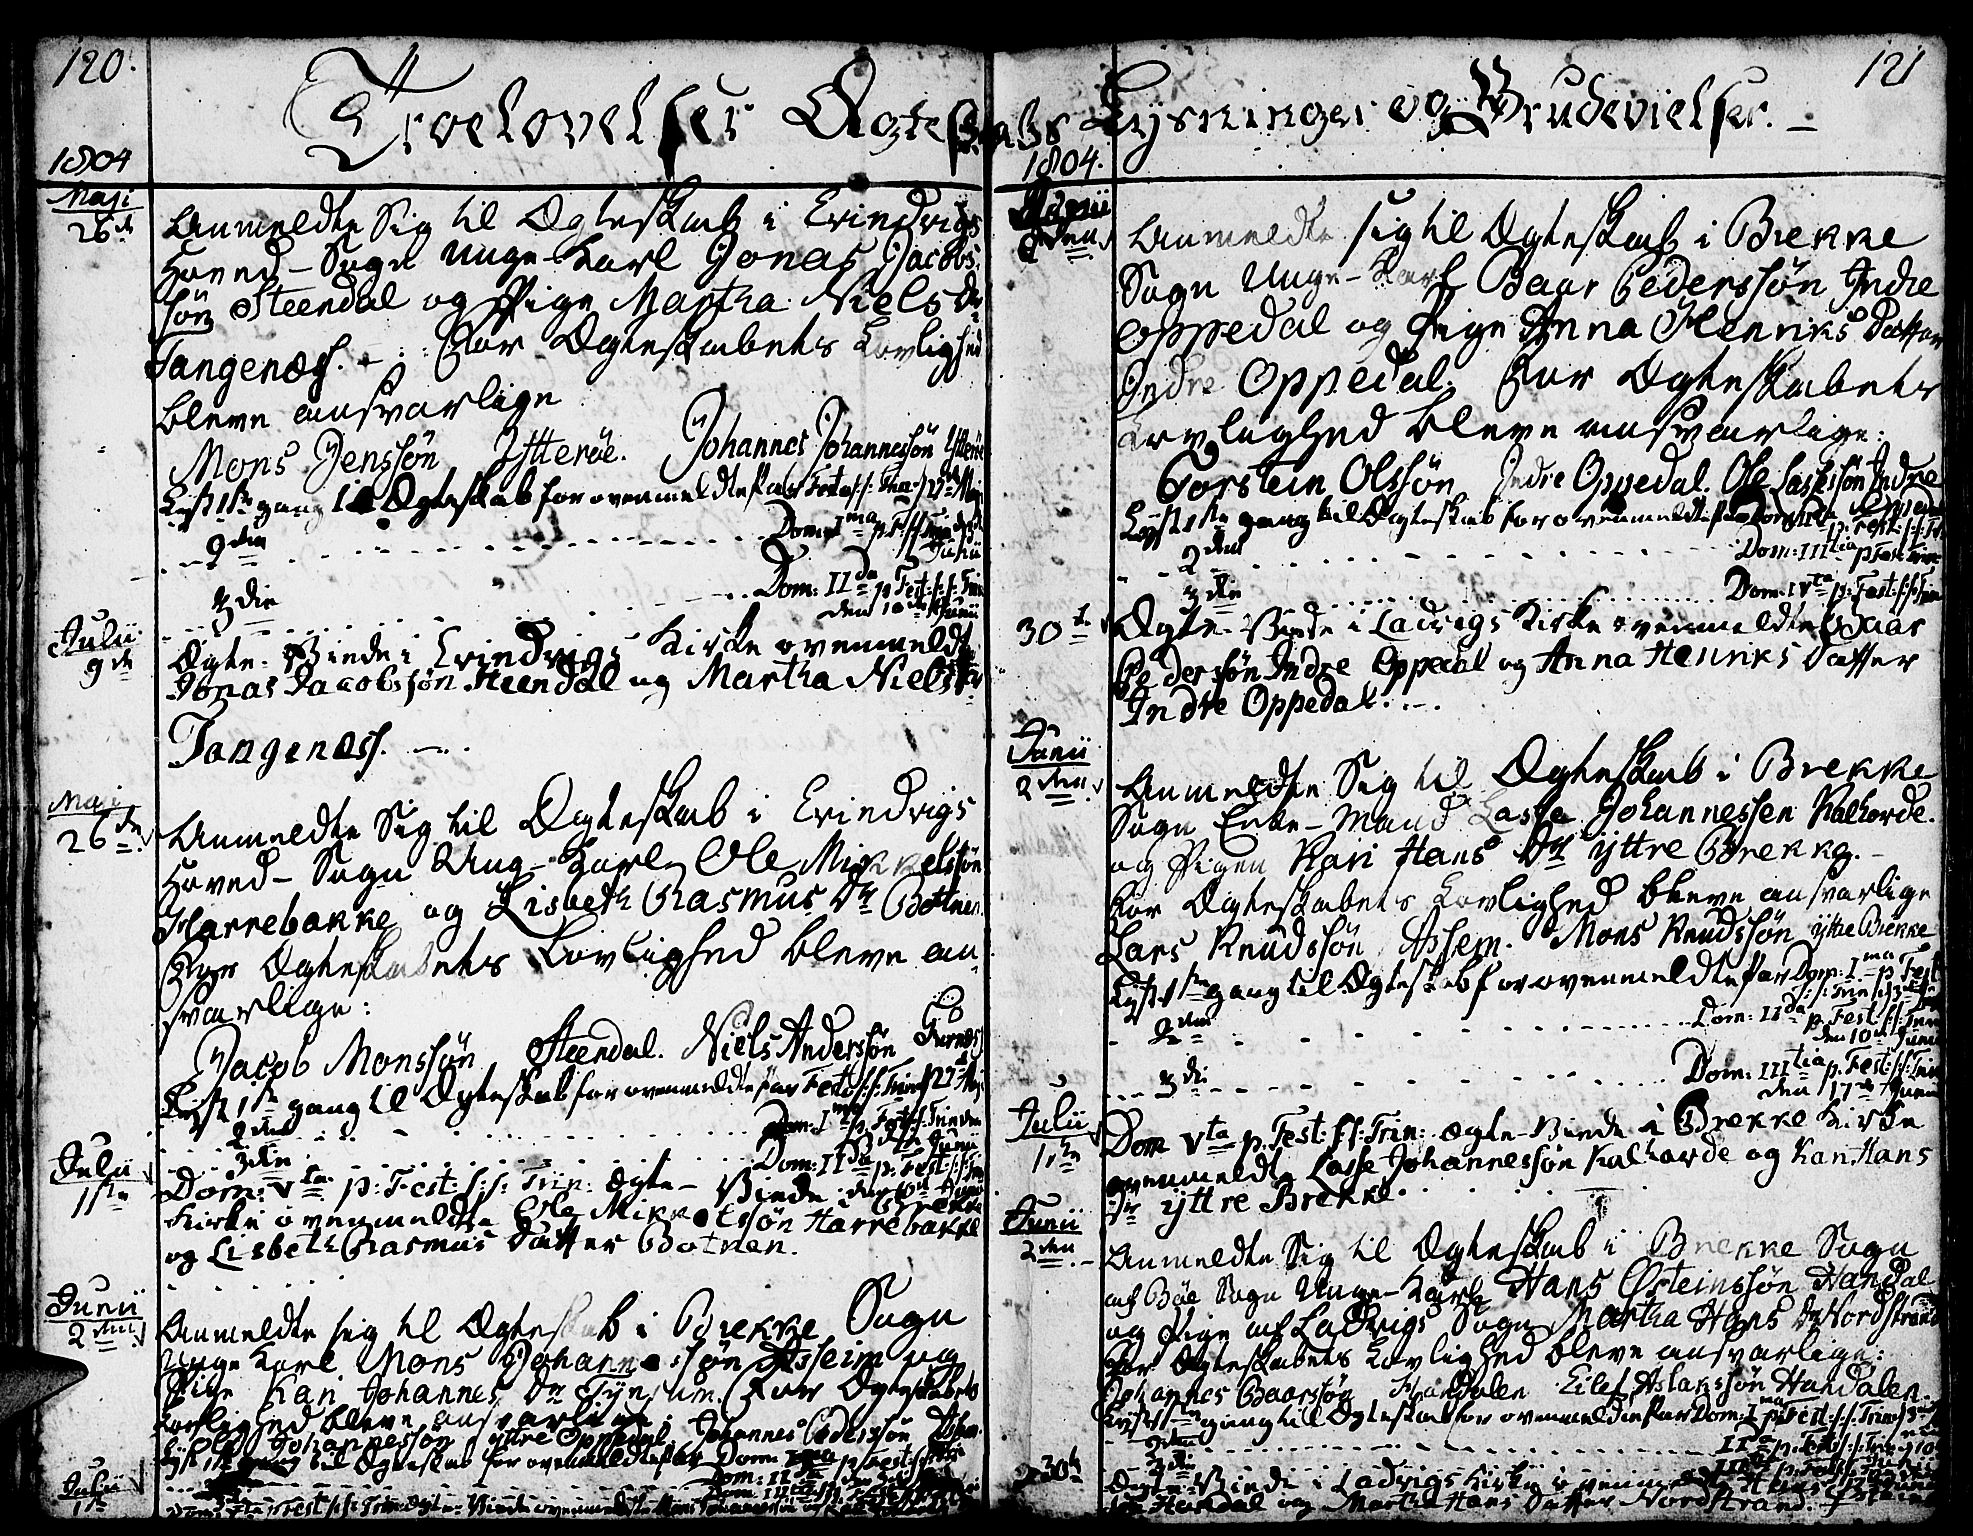 120.
Troelovelser Ægteskabs
1804
Maji
26de
Anmeldte Sig til Ægteskab i Evindvigs
Hoved-Sogn Unge Karl Jonas Jacobs
søn Steendal og Pige Martha Niels Dr
Tangenæss. - For Ægteskabets Lovlighed
bleve ansvarlige
Mons Jenssøn Ytterøe. Johannes Johannessøn Ytterøe
Lyst 1ste gang til Ægteskab for ovenmeldte Par Festo s:s: Trin: 27de Maji
2den Dom: Ima p: F: s:s: Trin:
Junii
3die Dom: IIda p: Fest: s:s: Trin:
den 10de Junii
Julii
9de
Ægte-Viede i Evindvigs Kirke ovenmeldte
Jonas Jacobssøn Steendal og Martha Niels Dr
Tangenæss. -
Maji
26de
Anmeldte Sig til Ægteskab i Evindvigs
Hoved-Sogn Ung-Karl Ole Mikkelssøn
Harrebakke og Lisbeth Rasmus Dr Botnen.
For Ægteskabets Lovlighed bleve an-
svarlige:
Jacob Monssøn Steendal. Niels Anderssøn
Lyst 1ste gang til Ægteskab for ovenmeldte Par Festo s:s: Trin: 27de Maji
2den Dom: Ima p: Fest: s:s: Trin: den
3die Dom: IIda p: Fest: s:s: Trin:
den 10de Junii
Julii
1ste
Dom: Vta p: Fest: s:s: Trin: Ægte-Viede i Brekke
Kirke ovenmeldte Ole Mikkelssøn Harrebakke
og Lisbeth Rasmus Datter Botnen.
Junii
2den
Anmeldte sig til Ægteskab i Brekke Sogn
Unge Karl Mons Johannessøn Asheim og
Pige Kari Johannes Dr Tynsum. For Ægteskabets
Lovlighed bleve ansvarlige:
Johannessøn yttre Oppedal. Johannes Pederssøn
Lyst 1ste gang til Ægteskab for ovenmeldte Par Dom: Ima p: Fest: s:s:
Dom: IIda
Dom: IIItia
Julii
1ste
121
Lysninger og Brudevielser. -
1804.
Junii
2den
Anmeldte sig til Ægteskab i Brekke
Sogn Unge-Karl Baar Pederssøn Indre
Oppedal og Pige Anna Henriks Datter
Indre Oppedal. For Ægteskabets
Lovlighed bleve ansvarlige:
Torstein Olssøn Indre Oppedal. Ole Lassessøn Indre
Lyst 1ste gang til Ægteskab for ovenmeldte Par
2den Dom: IIItia p: Fest: Trin:
3die Dom: IVta p: Fest: s:s: Trin:
30te
Ægte-Viede i Ladvigs Kirke ovenmeldte Baar
Pederssøn Indre Oppedal og Anna Henriks Datter
Indre Oppedal. -
Junii
2den
Anmeldte Sig til Ægteskab i Brekke
Sogn Enke-Mand Lasse Johannessen Kalhovde.
og Pigen Kari Hans Dr yttre Brekke. -
For Ægteskabets Lovlighed bleve ansvarlige
Lars Knudssøn Assem. Mons Knudssøn yttre Brekke
Lyst 1ste gang til Ægteskab for ovenmeldte Par Dom: Ima p: Fest:
s:s: Trin:
2den Dom: IIda p: Fest: s:s: Trin:
den 10de Junii
3die Dom: IIItia p: Fest: s:s: Trin:
den 17de Junii
Julii
1ste
Dom Vta p: Fest: s:s: Trin: Ægte-Viede i Brekke Kirke
ovenmeldte Lasse Johannessøn Kalhovde og Kari Hans
Dr yttre Brekke.
Junii
2den
Anmeldte Sig til Ægteskab i Brekke Sogn
af Bøe Sogn Unge-Karl Hans Østeinssøn Handal
og Pige af Ladvigs Sogn Martha Hans Dr Nordstrand
For Ægteskabets Lovlighed bleve ansvarlige:
Johannes Baarssøn Handalen Eilef Aslakssøn Handalen.
Lyst 1ste gang til Ægteskab for ovenmeldte Par Dom: Ima p: Fest: s:s: Trin:
2den IIda p: Fest: s:s: Trin:
3die IIItia p: Fest: s:s: Trin:
30te
Ægte-Viede i Ladvigs Kirke ovenmeldte Hans
Handal og Martha Hans Datter Nordstrand.